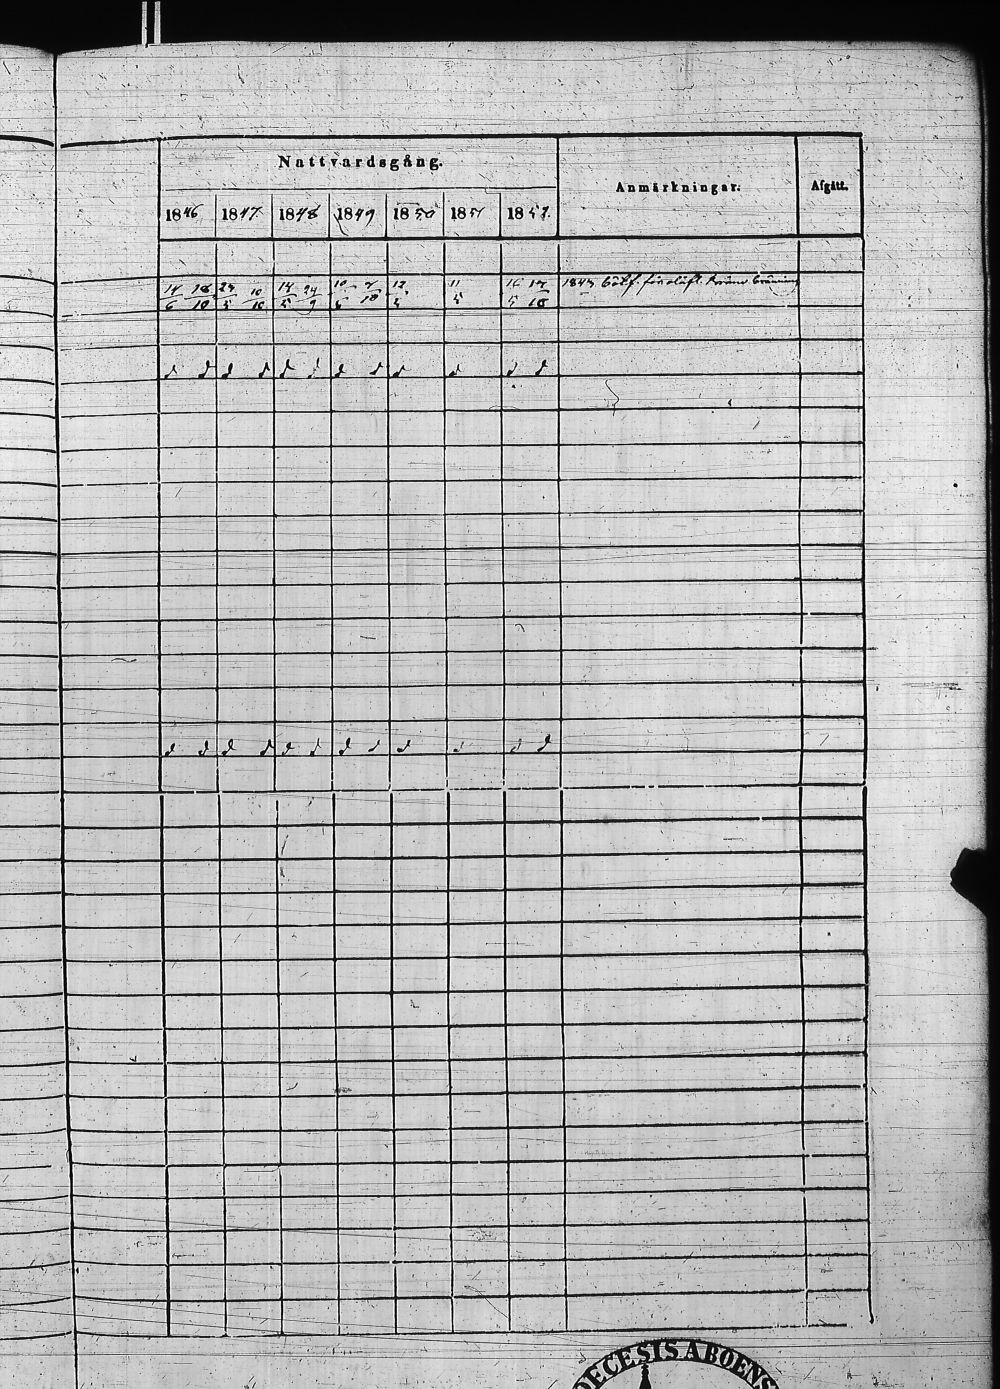 Nattvardsgång.
Anmärkningar. Afgått.
1846 1847 1848 1849 1850 1851 1852.
14/6 18/10 23/5 10/10 14/5 24/9 10/6 7/10 12/5 11/5 16/5 17/10
d d d d d d d d d d d
d d d d d d d d d d d d
DECESIS ABOENS